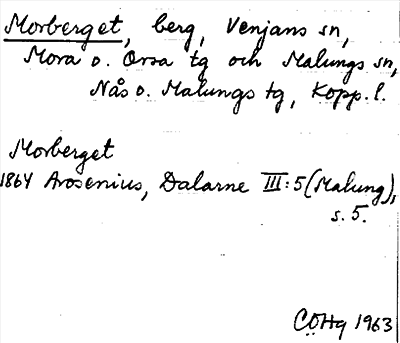 Morberget, berg, Venjans sn,
Mora o. Orsa tg och Malungs sn,
Nås o. Malungs tg, Kopp. l.
Morberget
1864 Arosenius, Dalarne III:5 (Malung),
s. 5.
CÖHg 1963